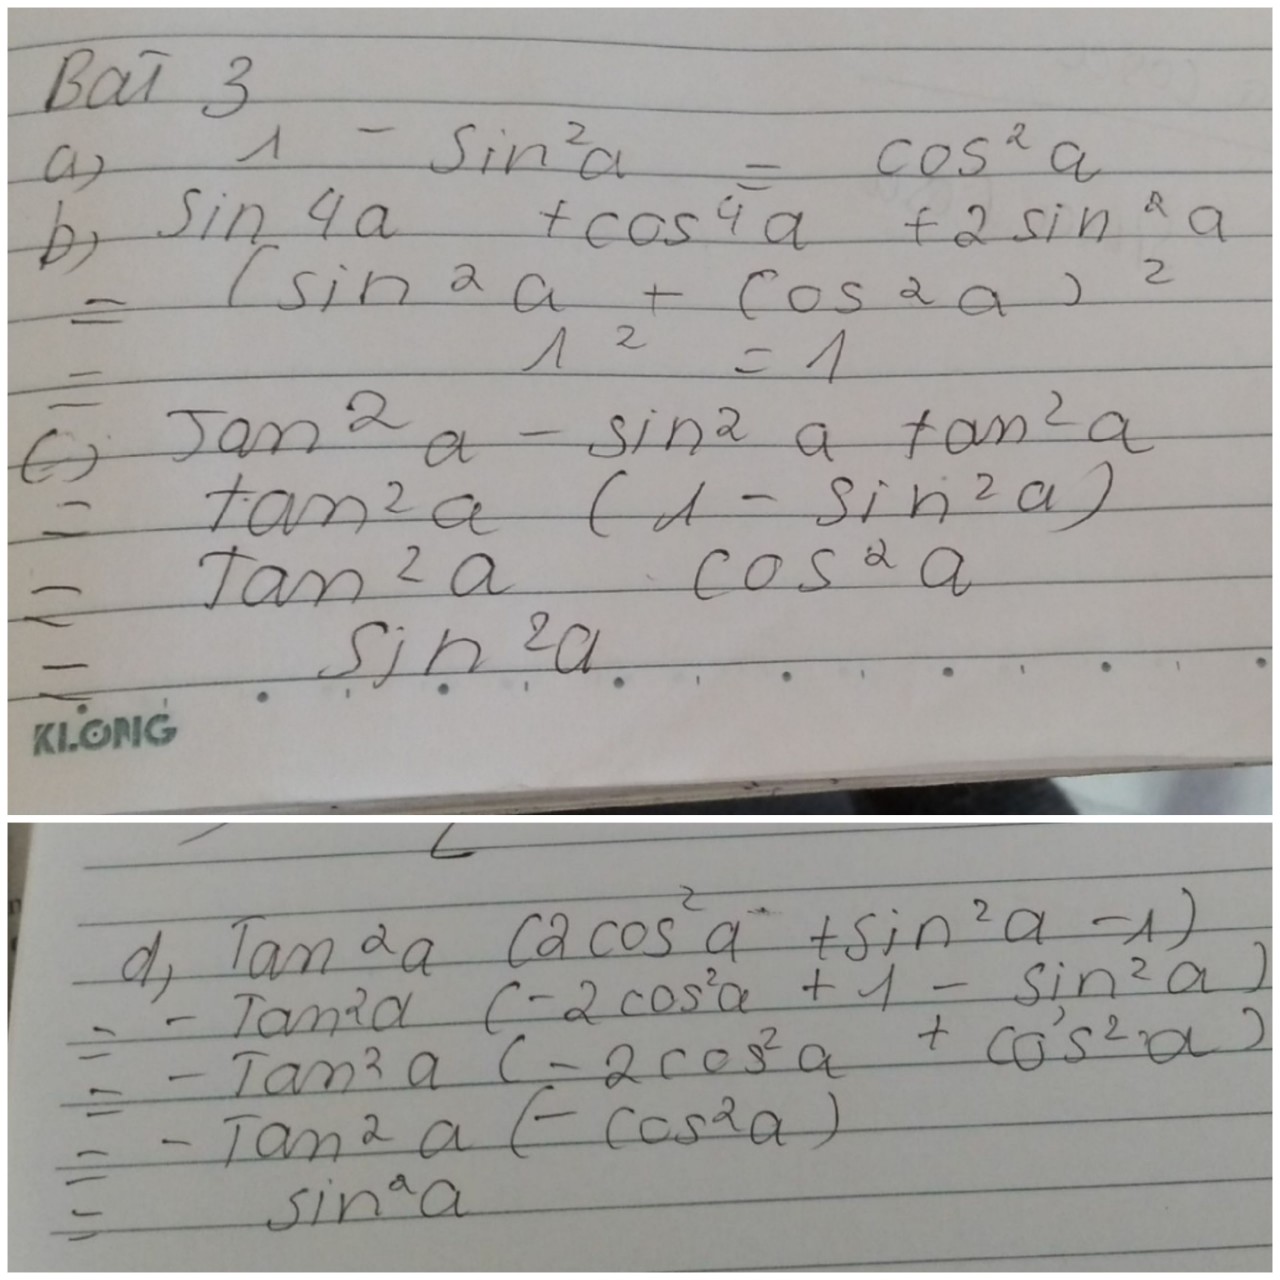 Bài 3
a) 1 - sin²a = cos²a
b) sin 4a + cos⁴a + 2 sin²a
= (sin²a + cos2a)²
= 1² = 1
c) Tan²a - sin²a tan²a
= tan²a (1 - sin²a)
= Tan²a cos²a
= sin²a
KLONG
d, Tan²a (2cos²a + sin²a - 1)
= - Tan²a (-2cos²a + 1 - sin²a)
= - Tan²a (-2cos²a + cos²a)
= - Tan²a (- cos²a)
= sin²a